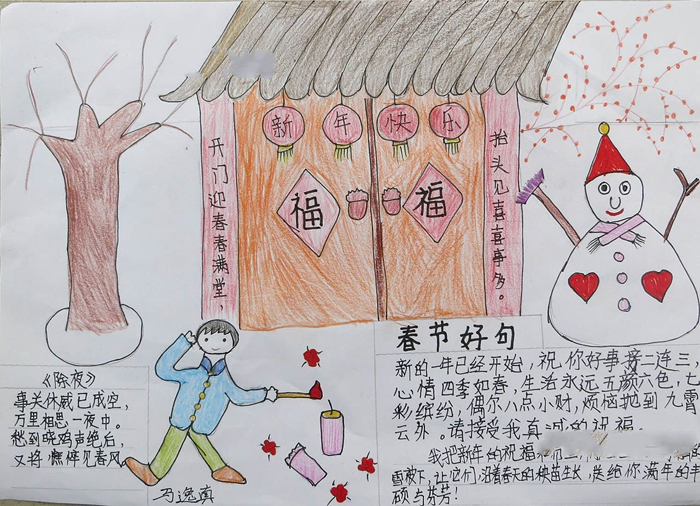 新年快乐
开门迎春春满堂，
抬头见喜喜事多。
福
福
春节好句
新的一年已经开始，祝你好事接二连三，
心情四季如春，生活永远五颜六色，七
彩缤纷，偶尔八点小财，烦恼抛到九霄
云外。请接受我真诚的祝福。
我把新年的祝福
的
雪被下，让它们沿着春天的秧苗生长，送给你满年的丰
硕与芬芳！
《除夜》
事关休戚已成空，
万里相思一夜中。
愁到晓鸡声绝后，
又将憔悴见春风。
马逸真